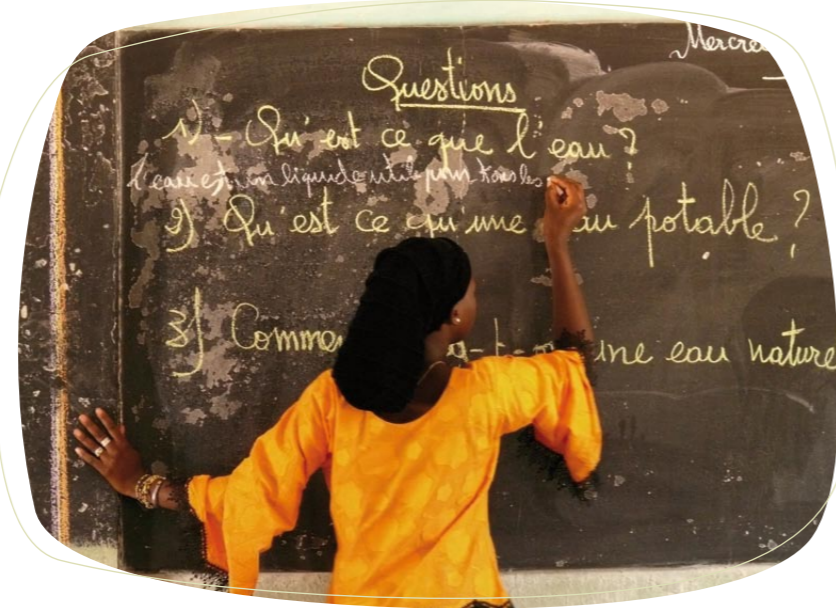 Mercre
Questions
1) - Qu'est ce que l'eau ?
L'eau est un liquide utile pour tous les
2) Qu'est ce qu'une au potable ?
3) Comme une eau nature